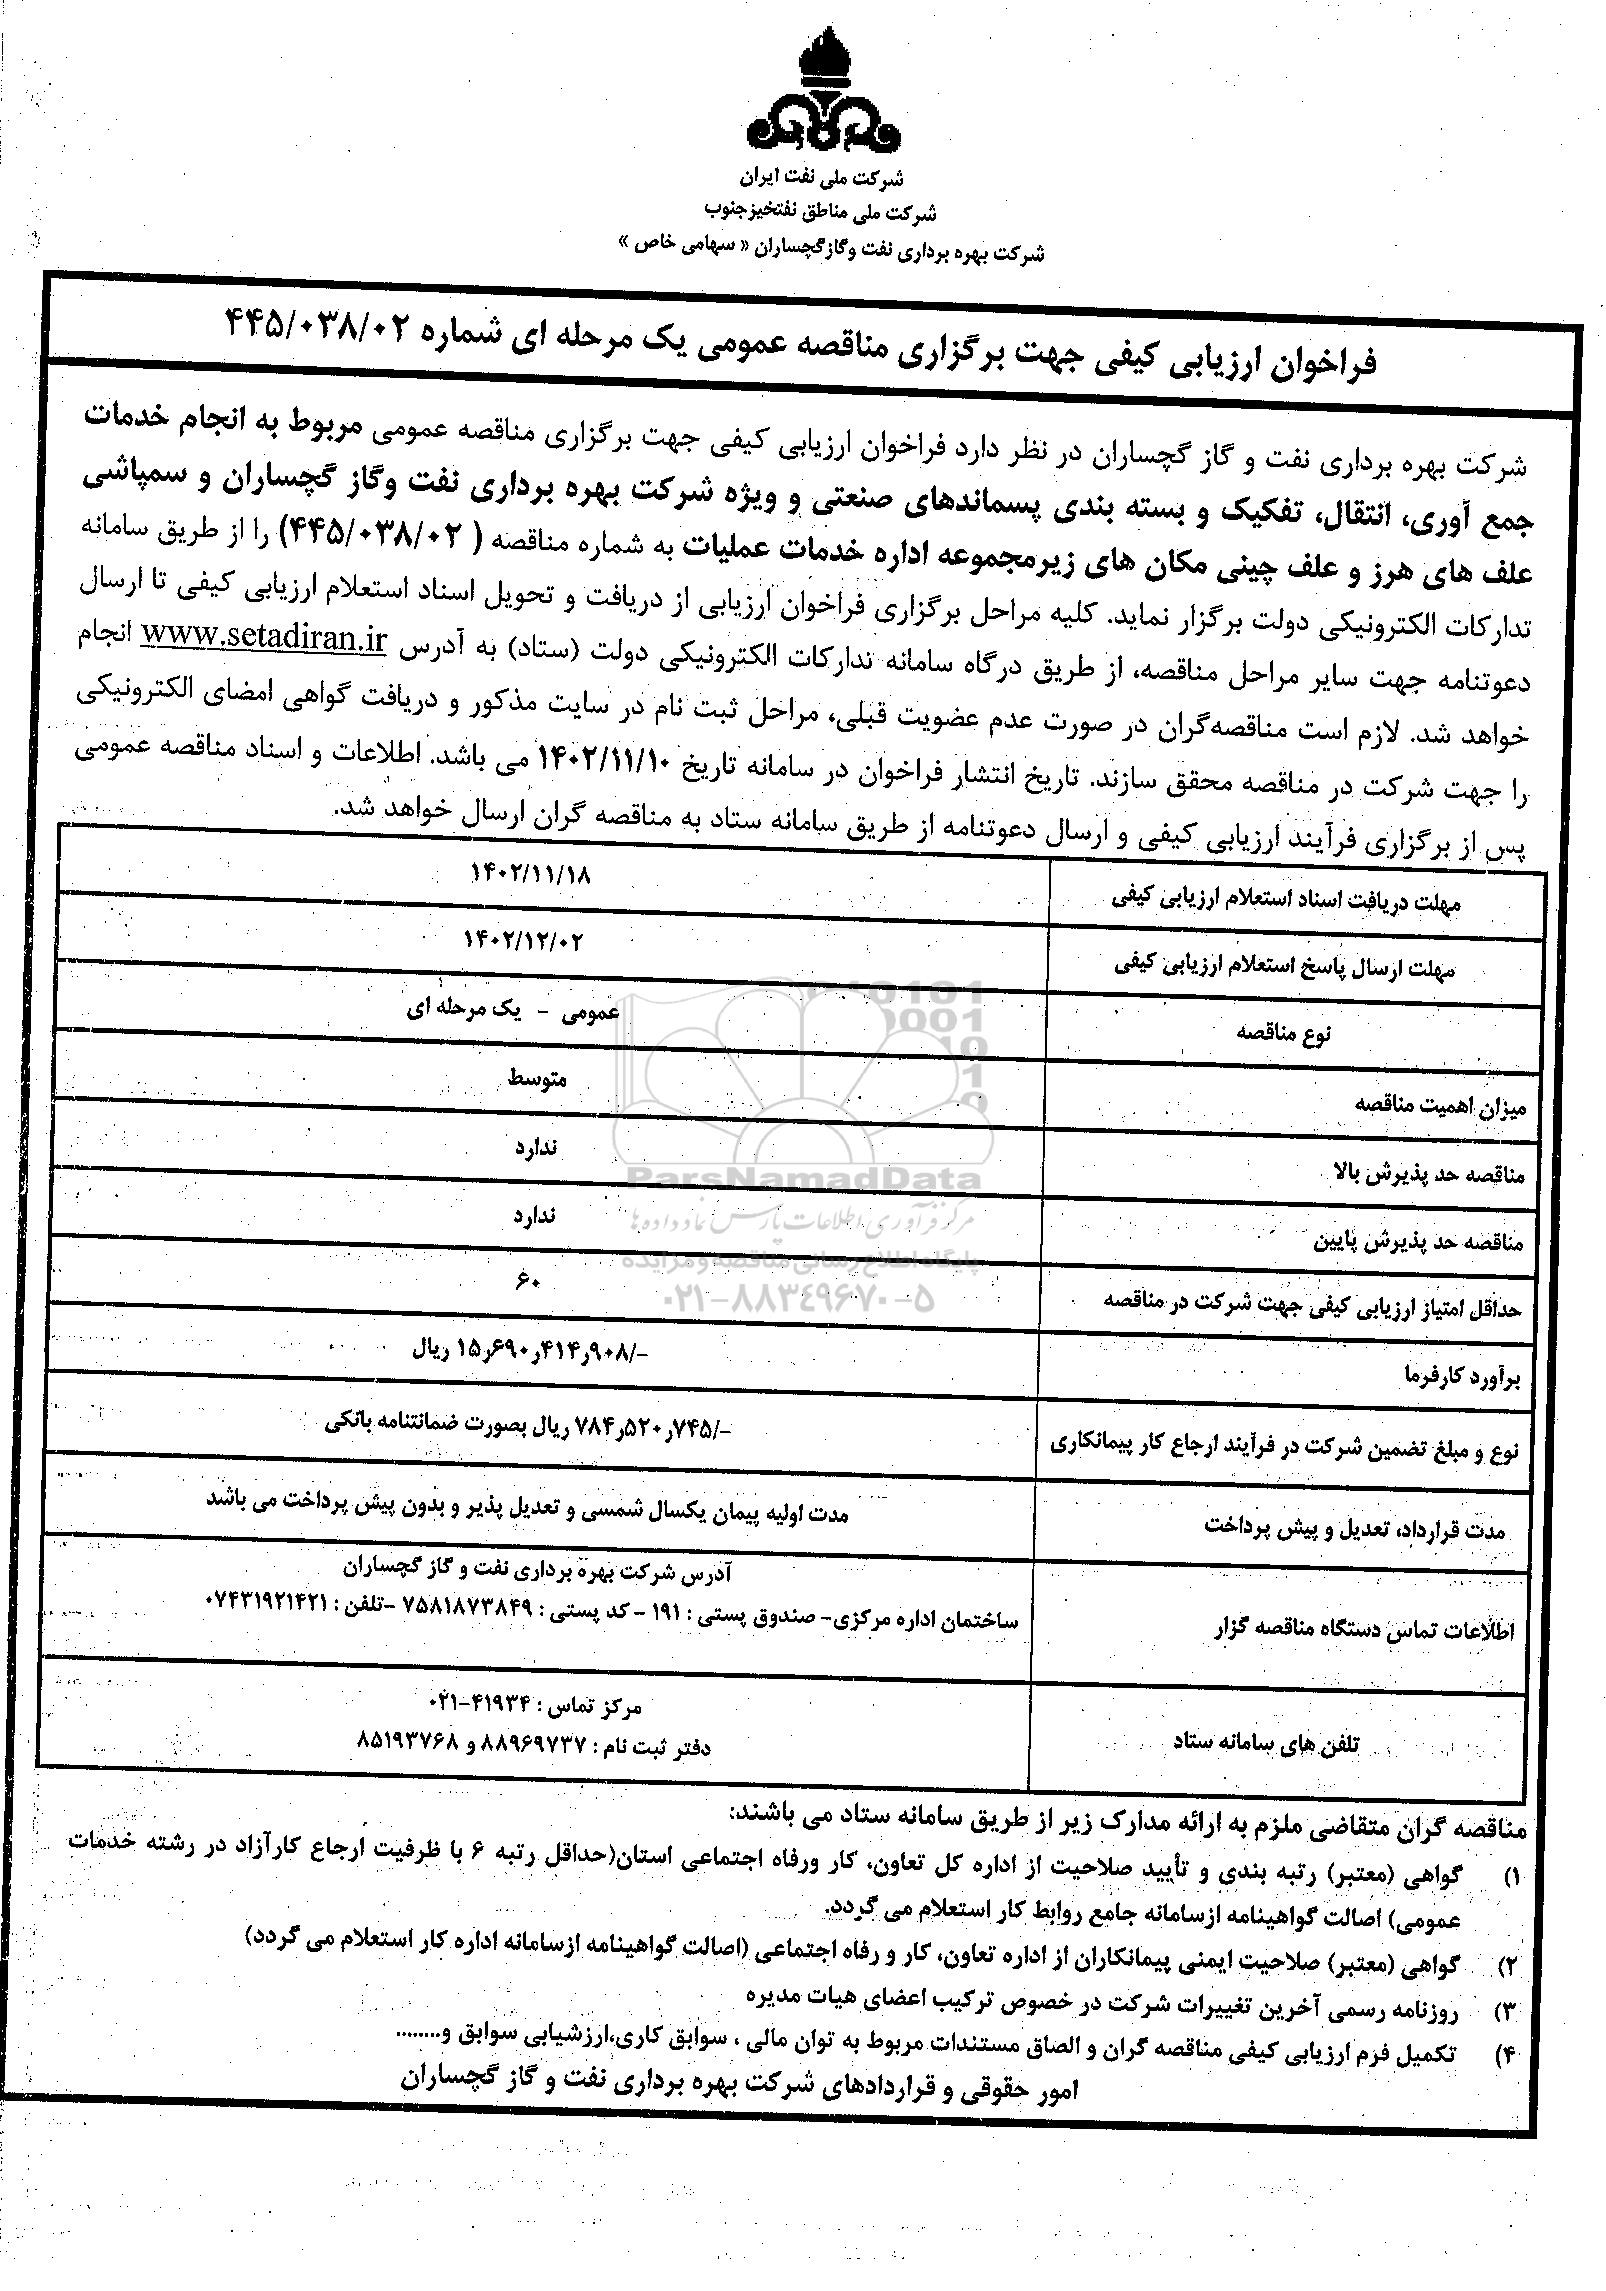 شرکت ملی نفت ایران
شرکت ملی مناطق نفتخیزجنوب
شرکت بهره برداری نفت وگازگچساران « سهامی خاص »
فراخوان ارزیابی کیفی جهت برگزاری مناقصه عمومی یک مرحله ای شماره ۴۴۵/۰۳۸/۰۲
شرکت بهره برداری نفت و گاز گچساران در نظر دارد فراخوان ارزیابی کیفی جهت برگزاری مناقصه عمومی مربوط به انجام خدمات
جمع آوری، انتقال، تفکیک و بسته بندی پسماندهای صنعتی و ویژه شرکت بهره برداری نفت وگاز گچساران و سمپاشی
علف های هرز و علف چینی مکان های زیرمجموعه اداره خدمات عملیات به شماره مناقصه ( ۴۴۵/۰۳۸/۰۲) را از طریق سامانه
تدارکات الکترونیکی دولت برگزار نماید. کلیه مراحل برگزاری فراخوان ارزیابی از دریافت و تحویل اسناد استعلام ارزیابی کیفی تا ارسال
دعوتنامه جهت سایر مراحل مناقصه، از طریق درگاه سامانه تدارکات الکترونیکی دولت (ستاد) به آدرس www.setadiran.ir انجام
خواهد شد. لازم است مناقصه‌گران در صورت عدم عضویت قبلی، مراحل ثبت نام در سایت مذکور و دریافت گواهی امضای الکترونیکی
را جهت شرکت در مناقصه محقق سازند. تاریخ انتشار فراخوان در سامانه تاریخ ۱۴۰۲/۱۱/۱۰ می باشد. اطلاعات و اسناد مناقصه عمومی
پس از برگزاری فرآیند ارزیابی کیفی و ارسال دعوتنامه از طریق سامانه ستاد به مناقصه گران ارسال خواهد شد.
مهلت دریافت اسناد استعلام ارزیابی کیفی ۱۴۰۲/۱۱/۱۸
مهلت ارسال پاسخ استعلام ارزیابی کیفی ۱۴۰۲/۱۲/۰۲
نوع مناقصه عمومی - یک مرحله ای
میزان اهمیت مناقصه متوسط
مناقصه حد پذیرش بالا ندارد
مناقصه حد پذیرش پایین ندارد
حداقل امتیاز ارزیابی کیفی جهت شرکت در مناقصه ۶۰
برآورد کارفرما -/۱۵٫۶۹۰٫۴۱۴٫۹۰۸ ریال
نوع و مبلغ تضمین شرکت در فرآیند ارجاع کار پیمانکاری -/۷۸۴٫۵۲۰٫۷۴۵ ریال بصورت ضمانتنامه بانکی
مدت قرارداد، تعدیل و پیش پرداخت مدت اولیه پیمان یکسال شمسی و تعدیل پذیر و بدون پیش پرداخت می باشد
آدرس شرکت بهره برداری نفت و گاز گچساران
اطلاعات تماس دستگاه مناقصه گزار ساختمان اداره مرکزی- صندوق پستی : ۱۹۱ - کد پستی : ۷۵۸۱۸۷۳۸۴۹ -تلفن : ۰۷۴۳۱۹۲۱۴۲۱
مرکز تماس : ۴۱۹۳۴-۰۲۱
تلفن های سامانه ستاد دفتر ثبت نام : ۸۸۹۶۹۷۳۷ و ۸۵۱۹۳۷۶۸
مناقصه گران متقاضی ملزم به ارائه مدارک زیر از طریق سامانه ستاد می باشند:
۱) گواهی (معتبر) رتبه بندی و تأیید صلاحیت از اداره کل تعاون، کار ورفاه اجتماعی استان(حداقل رتبه ۶ با ظرفیت ارجاع کارآزاد در رشته خدمات
عمومی) اصالت گواهینامه ازسامانه جامع روابط کار استعلام می گردد.
۲) گواهی (معتبر) صلاحیت ایمنی پیمانکاران از اداره تعاون، کار و رفاه اجتماعی (اصالت گواهینامه ازسامانه اداره کار استعلام می گردد)
۳) روزنامه رسمی آخرین تغییرات شرکت در خصوص ترکیب اعضای هیات مدیره
۴) تکمیل فرم ارزیابی کیفی مناقصه گران و الصاق مستندات مربوط به توان مالی ، سوابق کاری،ارزشیابی سوابق و........
امور حقوقی و قراردادهای شرکت بهره برداری نفت و گاز گچساران
ParsNamadData
مرکز فرآوری اطلاعات پارس نماد داده ها
پایگاه اطلاع رسانی مناقصه و مزایده
۰۲۱-۸۸۳۴۹۶۷۰-۵